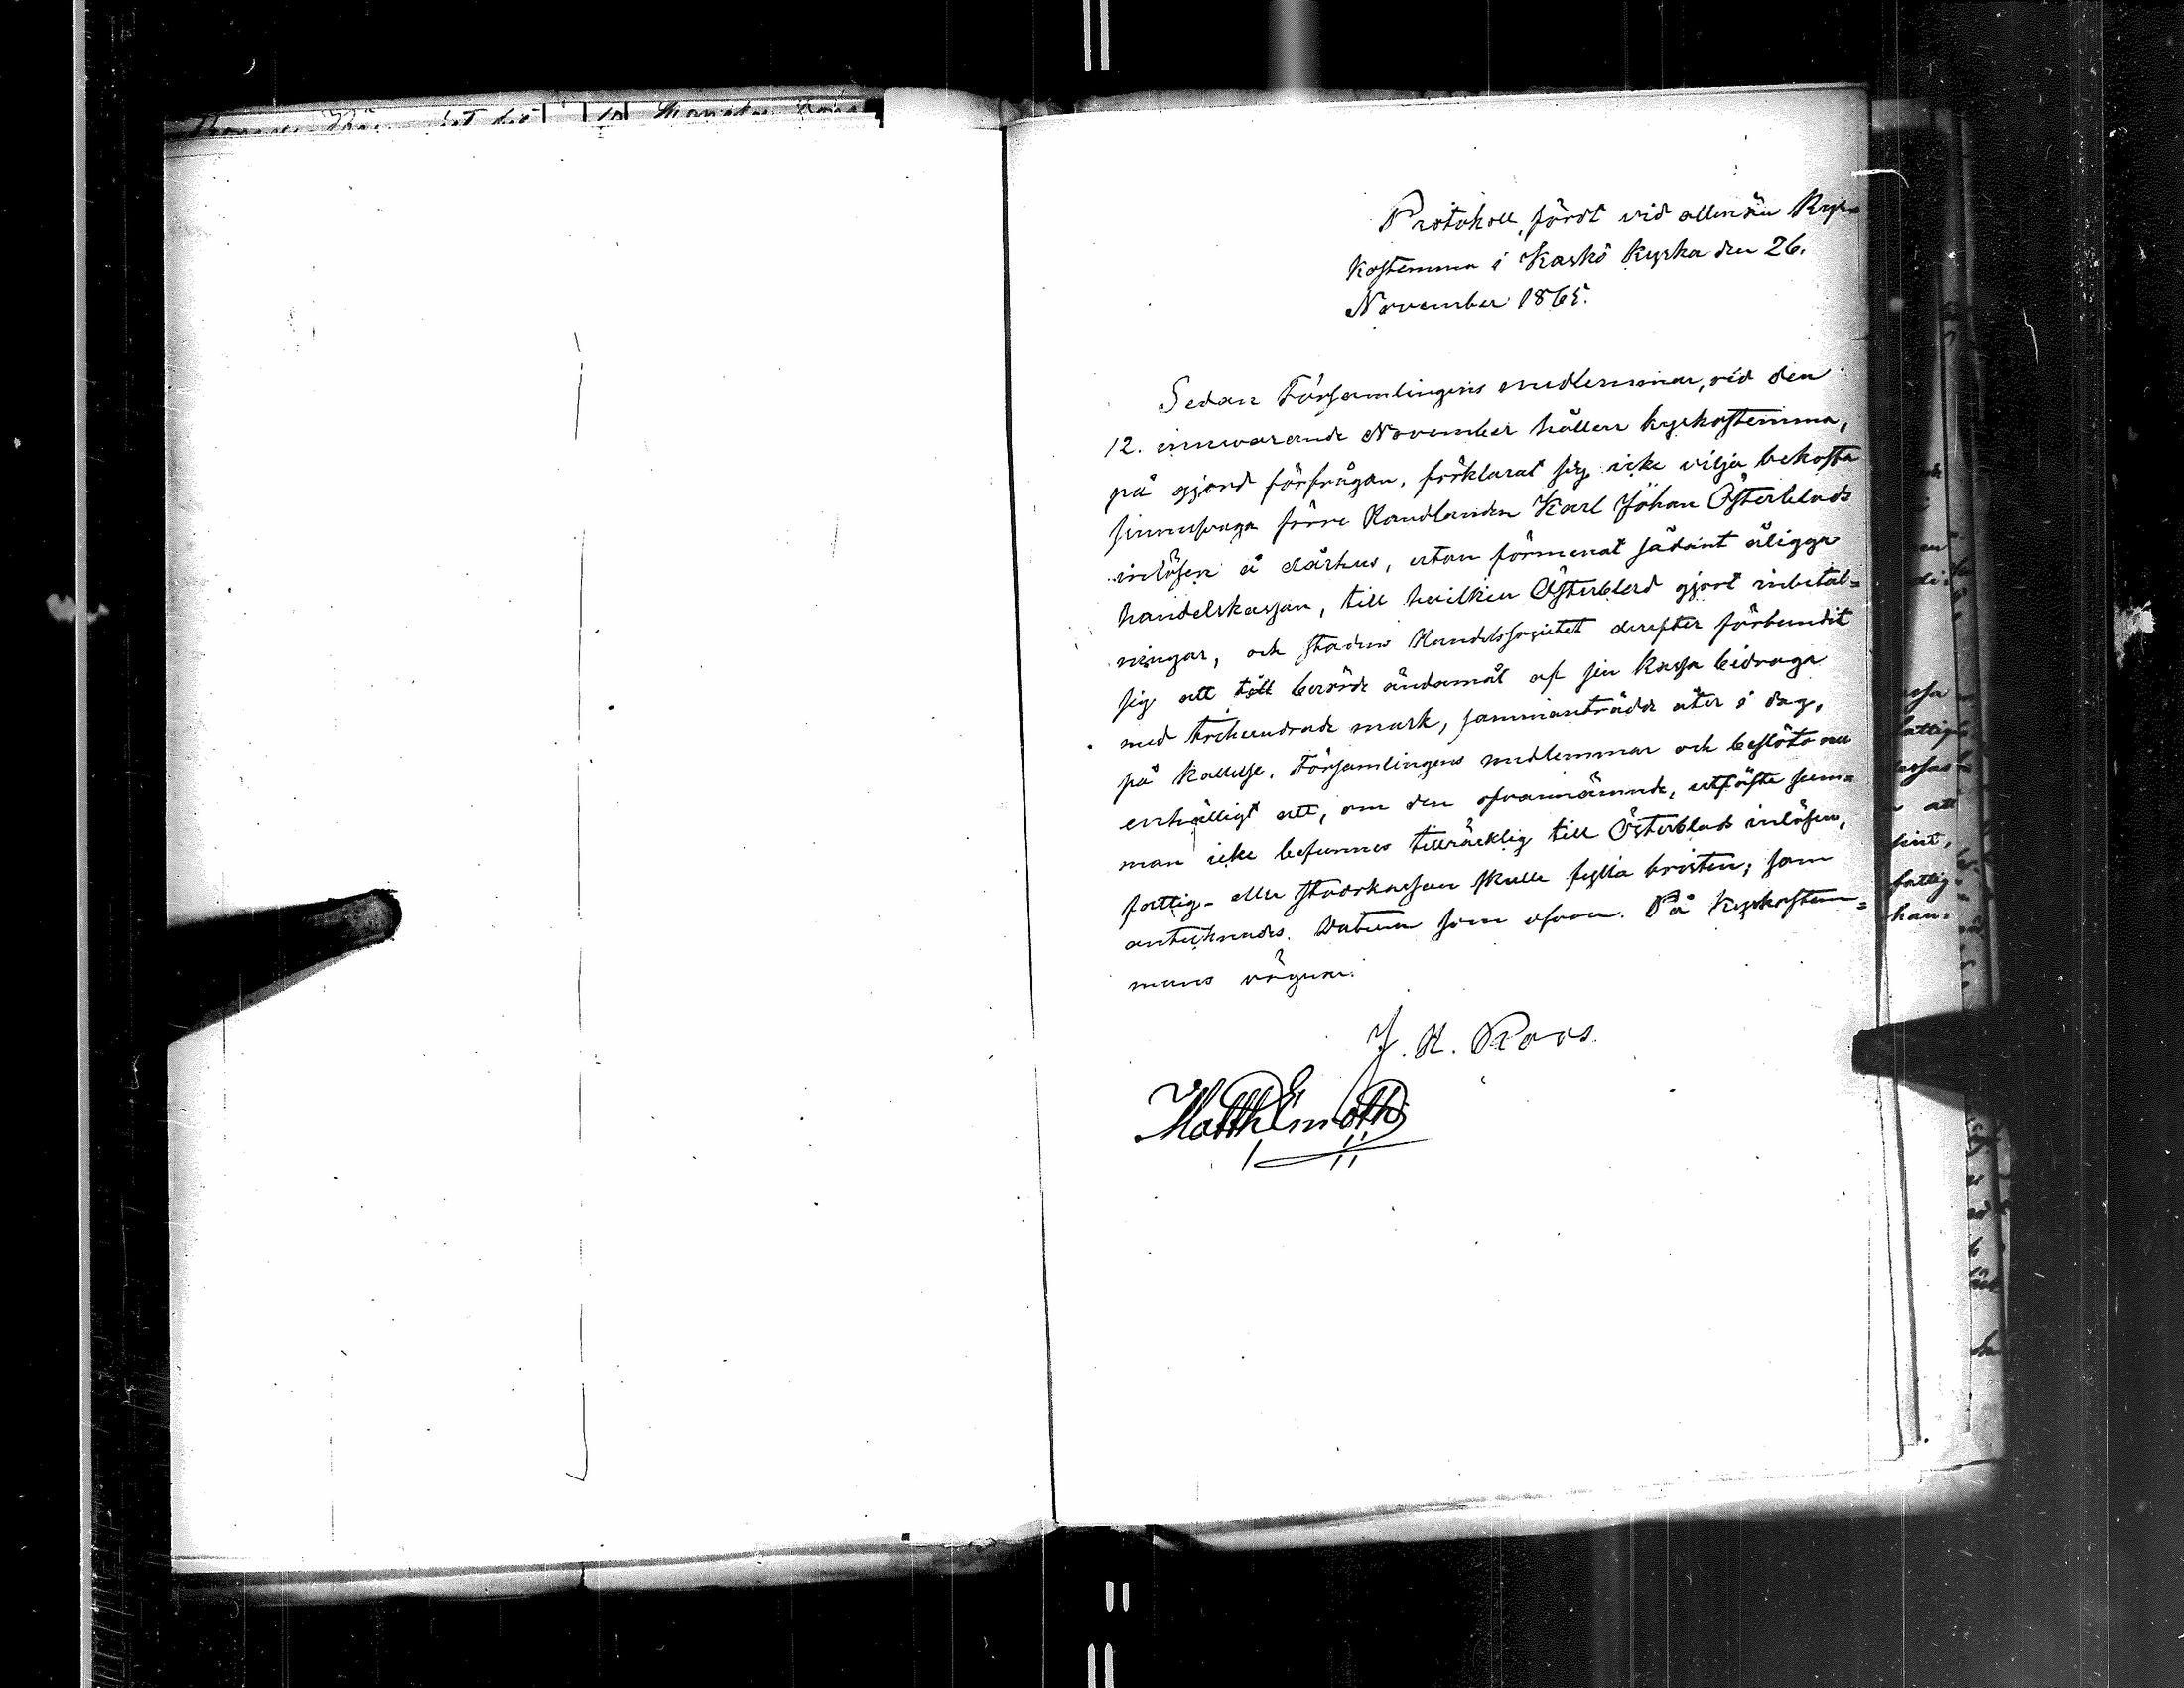 Protokoll, fördt vid allmän Kyr=
kostemma i Kaskö Kyrka den 26.
November 1865.
Sedan Församlingens medlemmar, vid den
12. innevarande November hållen kyrkostemma,
på gjord förfrågan, förklarat sig icke vilja bekosta
sinnessvaga förre Handlanden Karl Johan Österblads
inlösen å dårhus, utan förmenat sådant åligga
handelskassan, till hvilken Österblad gjort inbetal=
ningar, och stadens Handelssocietet derefter förbundit
sig att till berörde ändamål af sin kassa bidraga
med trehundrade mark, sammanträdde åter i dag,
på kallelse, Församlingens medlemmar och beslöto nu
enhälligt att, om den ofvannämnde, utfäste sum=
man icke befunnes tillräcklig till Österblads inlösen,
fattig- eller stadskassan skulle fylla bristen; som
antecknades. Datum som ofvan. På Kyrkostem=
mans vägnar.
J. H. Roos.
Matth